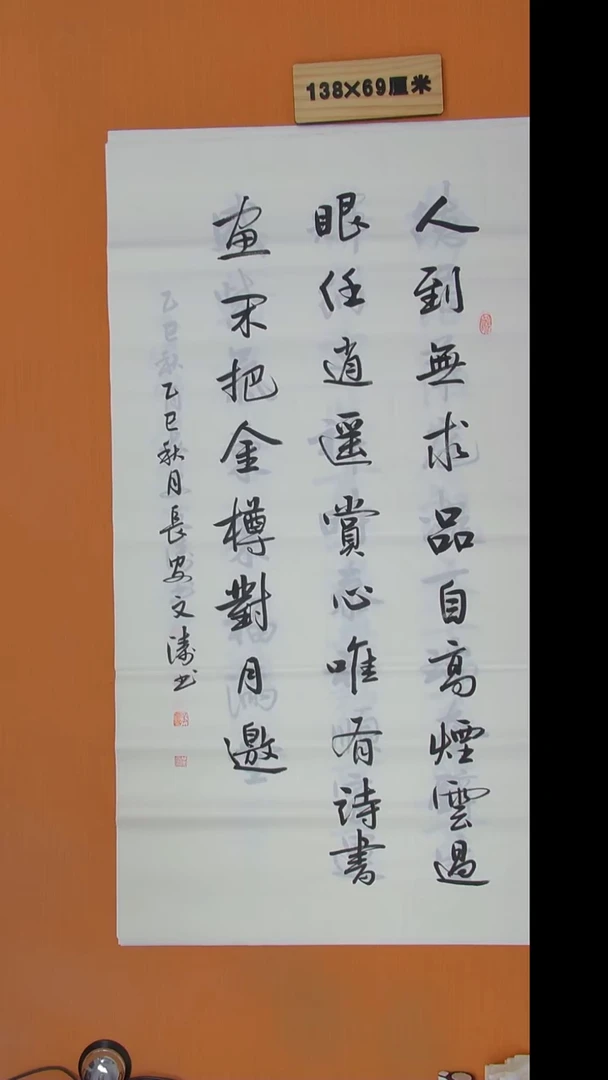 138×69厘米
人到無求品自高煙雲過
眼任逍遥賞心唯有詩書
畫不把金樽對月邀
乙巳秋月長安文濤书